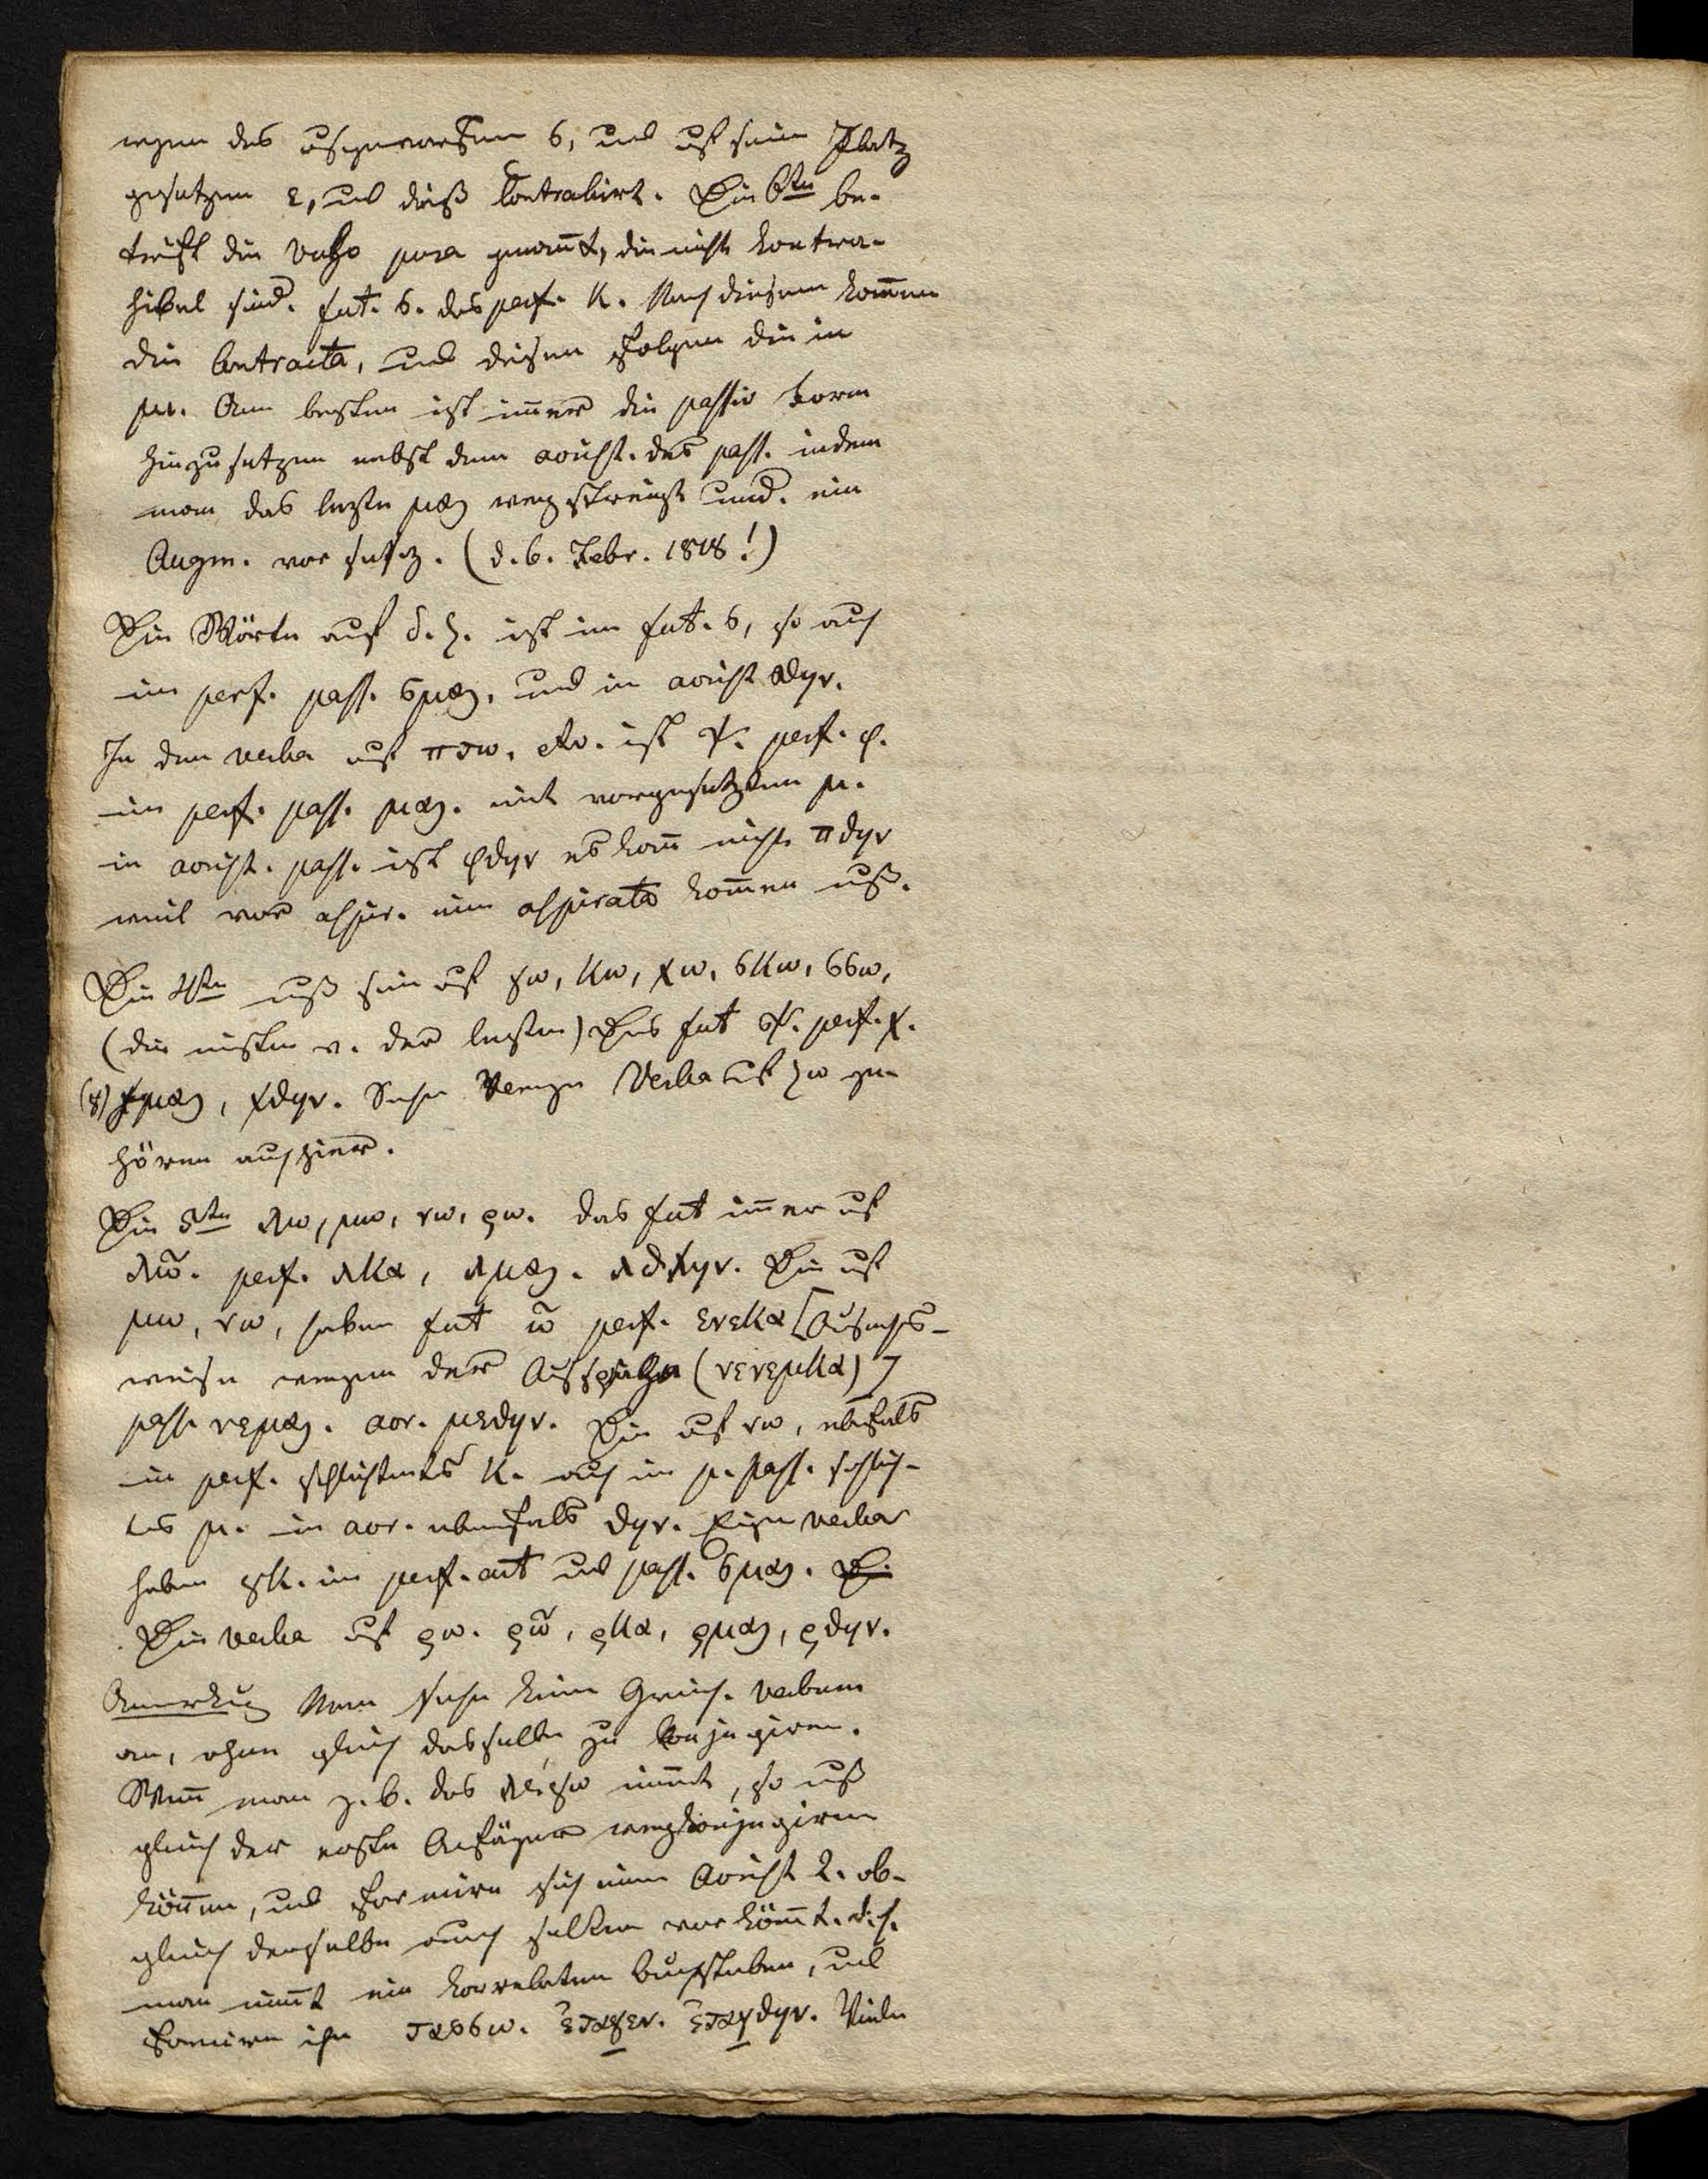 wegen des ausgeworfenen σ, und auf sein Platz
gesetzen ε, und dieß Contrahirt. Die 6te be-
trift die Verba pura genannt, die nicht kontra-
hibel sind. fut. σ. das perf. κ. Nach diesem kommen
die Contracta, und diesen folgen die in
μι. Am besten ist immer die passiv Form
hinzusetzen nebst dem aorist. des pass. indem
man das letzte μαι wegstreicht und. ein
Augm. vor setzt. (d. 6. Febr. 1818!)
Die Wörter auf δ. ζ. ist im fut. σ, so auch
im perf. pass. σμαι. und im aorist σθην.
In den verba auf πτω. etc. ist ψ. perf. φ.
im perf. pass. μαι. mit vorgesetztem μ.
in aorist. pass. ist φθην es kann nicht πθην
weil vor aspir. eine aspirata kommen muß.
Die 4te muß sein auf γω, κω, χω, σκω, σσω,
(die meisten v. der letzten) Das fut ξ. perf. χ.
(γ) γμαι, χθην. Sehr Wenige Verba auf ζω ge-
hören auch hier.
Die 5te λω, μω, νω, ρω. das fut immer auf
λῶ. perf. λκα, λμαι. λθην. Die auf
μω, νω, haben fut ῶ perf. ενεκα [Ausnahms-
weise wegen der Aussprache (νενεμκα)]
pass. νεμαι. aor. μεθην. Die auf νω, ebenfals
im perf. schlichtendes κ. auch im p. pass. schlich-
tes μ. im aor. ebenfals θην. Einige verba
haben γκ. im perf. act und pass. σμαι.
Die verba auf ρω. ρῶ, ρκα, ρμαι, ρθην.
Anmerkung Man sehe keine Griech. verbum
an, ohne gleich dasselbe zu konjugiren.
Wenn man z. b. das λείπω nimmt, so muß
gleich der erste Anfänger wegkonjugiren
können, und formire sich einen Aorist 2. ob-
gleich derselbe auch selten vorkömmt. d. h.
man nimmt ein korrelaten Buchstaben, und
formire ihn τασσω. ἐταγεν. ἐταχθην. Viele